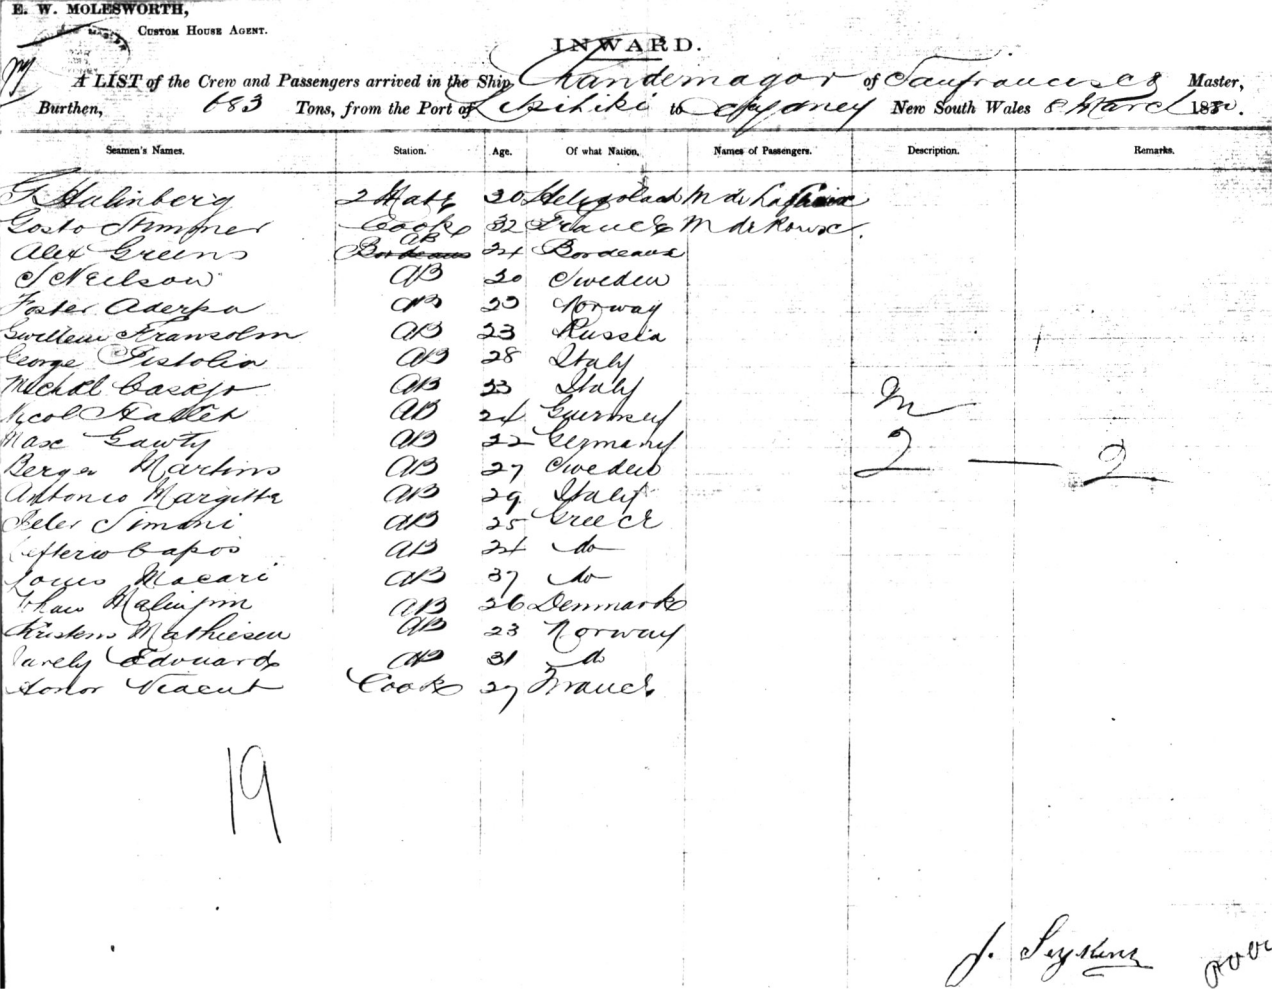 E. W. MOLESWORTH,
CUSTOM HOUSE AGENT.
INWARD.
A LIST of the Crew and Passengers arrived in the Ship Chandernagor of Sanfrancisco Master,
Burthen, 683 Tons, from the Port of to Sydney New South Wales 8 March 1880.
Seamen's Names. Station. Age. Of what Nation. Names of Passengers. Description. Remarks.
2 Mate 30 Heligoland M de
Gosto Cook 32 France M de Roux.
AB
Alex Greens Bordeaux 24 Bordeaux
J Neilson AB 20 Sweden
Foster Aderpa AB 23 Norway
AB 23 Russia
George Pistolia AB 28 Italy
Michal AB 23 Italy
M
Nicol AB 24 Guernsey
Max Gawty AB 22 Germany
2 — 2
Berger Martins AB 27 Sweden
Antonio Margitta AB 29 Italy
Peter Simoni AB 25 Greece
Capos AB 24 do
Louis Macari AB 37 do
AB 26 Denmark
Mathiesen AB 23 Norway
Edouard AB 31 do
Honor Cook 27 France
19
J.